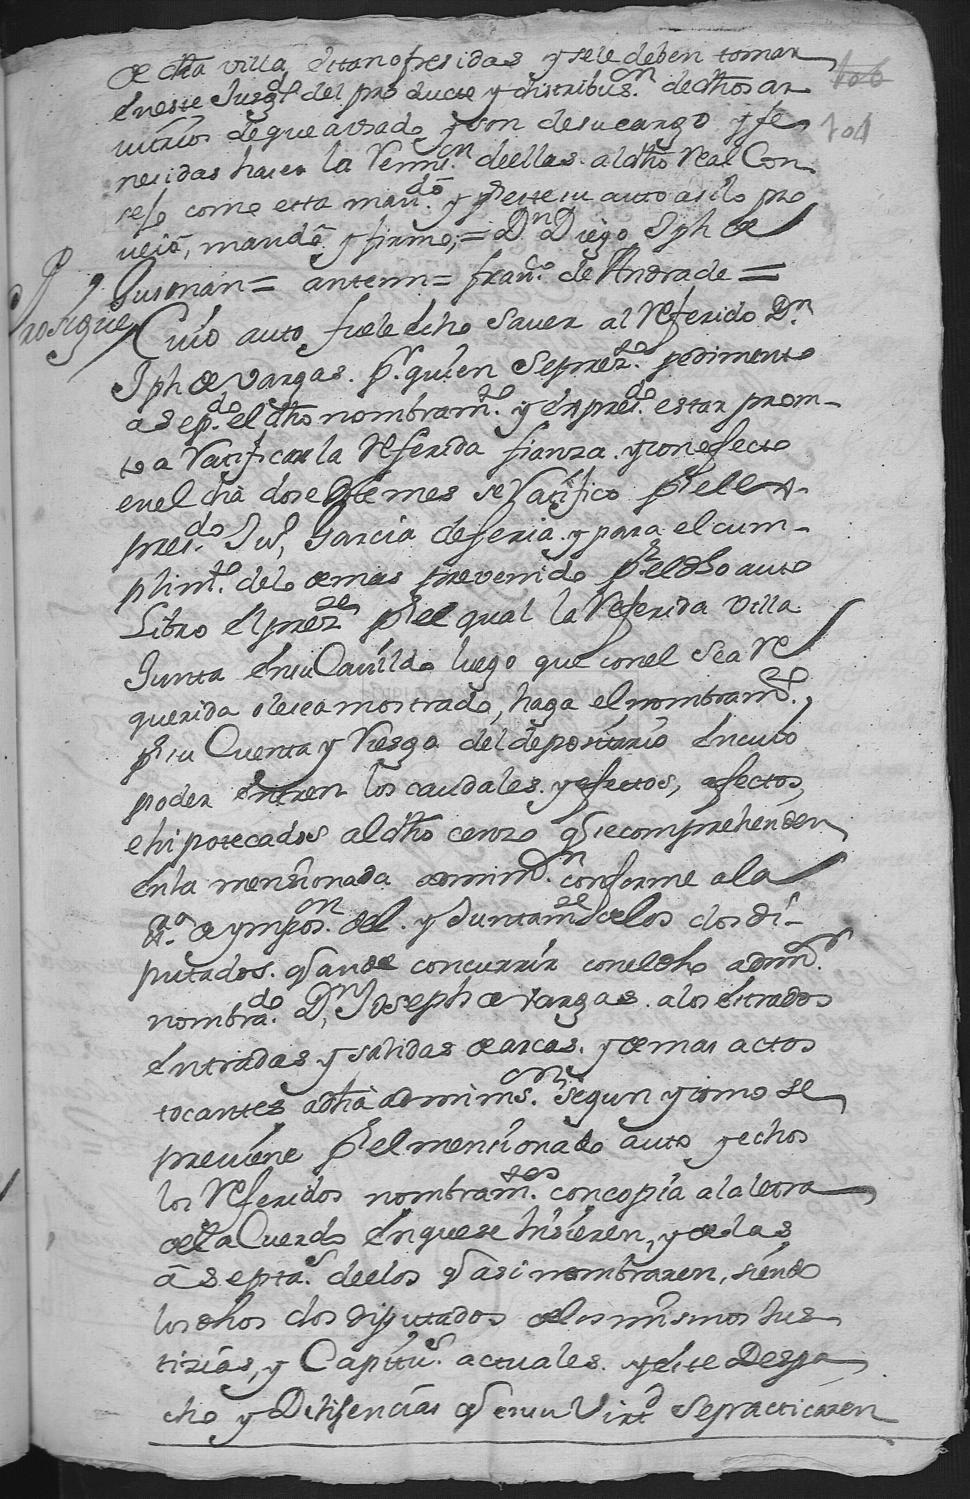 de dha villa estan ofresidas y se le deben tomar
en este Jusgdo del producto y distribusn de dhos ar
vitrios de que a usado y son de su cargo y fe
nesidas hacer la Remisn de ellas al dho Real Con
sejo como esta mando y pr este su auto asi lo pro
veió, mandó y firmó = Dn Diego Jph de
Gusman = antemi = franco de Andrade =
Prosigue
Cuio auto fue echo saver al Referido Dn
Jph de Vargas pr quien se presto pedimento
asepdo el dho nombramto y expresdo estar prom-
to a Ratificar la Referida fianza y con efecto
en el dia dose de este mes se Ratifico pr el ex-
presdo Ju, Garcia de feria y para el cum-
plimto de lo demas prevenido pr el dho auto
Libro el preste pr el qual la Referida Villa
Junta en su Cavildo luego que con el sea Re
querida o le sea mostrado, haga el nombramto
pr su Cuenta y Riesgo del depositario en cuio
poder entren los caudales y efectos, afectos,
e hipotecados al dho censo q se comprehenden
en la mensionada adminon conforme a la
Ra de ymposon del y Juntamte de los dos di-
putados q an de concurrir con el dho admor
nombrado Dn Joseph de Vargas a los citrados
entradas y salidas de arcas y demas actos
tocantes a dha adminson segun y como se
previene pr el mensionado auto y echos
los Referidos nombramtos con copia a la letra
de la Cuerdo en que se hisieren, y de las
aseptas de los q asi nombraren, siendo
los dhos dos diputados de los mismos Jus
tisias, y Capitus actuales y este Despa
cho y Dilisencias q en su Virtd se practicaren